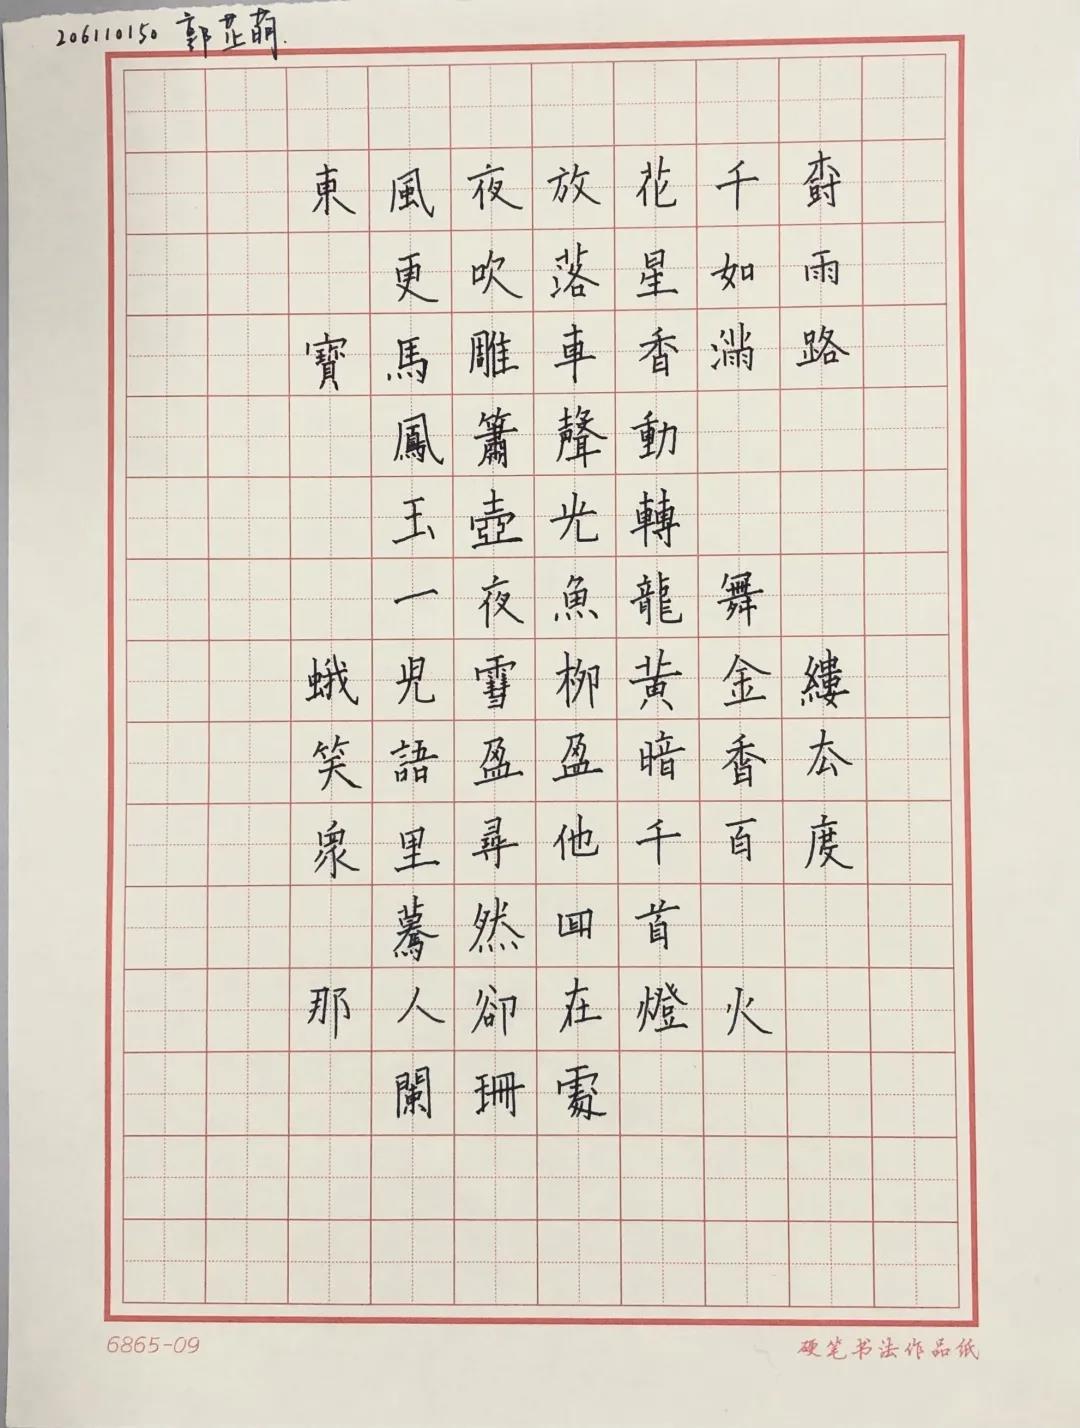 206110150 郭芷萌.
東風夜放花千尌
更吹落星如雨
寶馬雕車香滿路
鳳簫聲動
玉壺光轉
一夜魚龍舞
蛾兒雪柳黃金縷
笑語盈盈暗香厺
衆里尋他千百度
驀然回首
那人卻在燈火
闌珊處
6865-09
硬笔书法作品纸